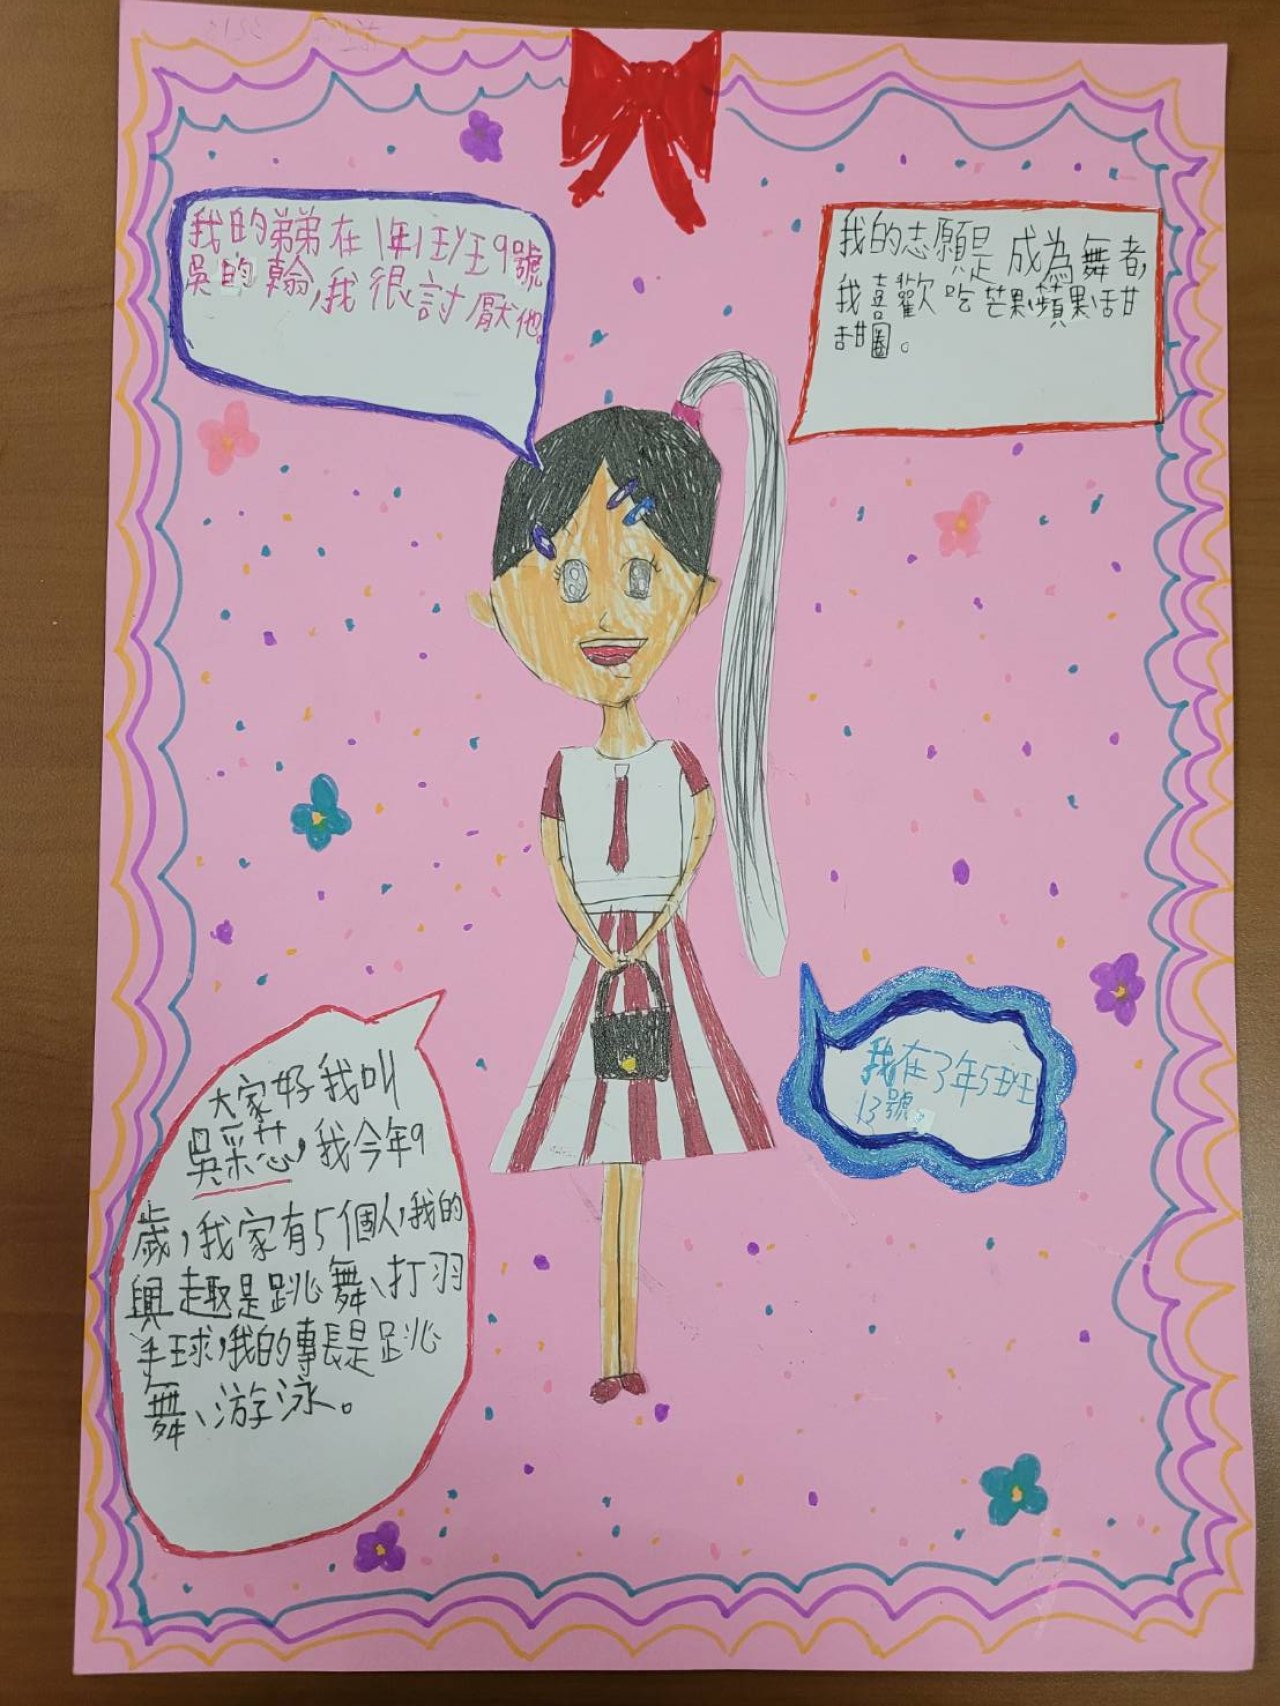 我的弟弟在1年1班9號
吳昀翰,我很討厭他。
我的志願是成為舞者,
我喜歡吃芒果、蘋果、甜
甜圈。
我在3年5班
13號。
大家好我叫
吳采芯,我今年9
歲,我家有5個人,我的
興趣是跳舞、打羽
羊球,我的專長是跳
舞、游泳。